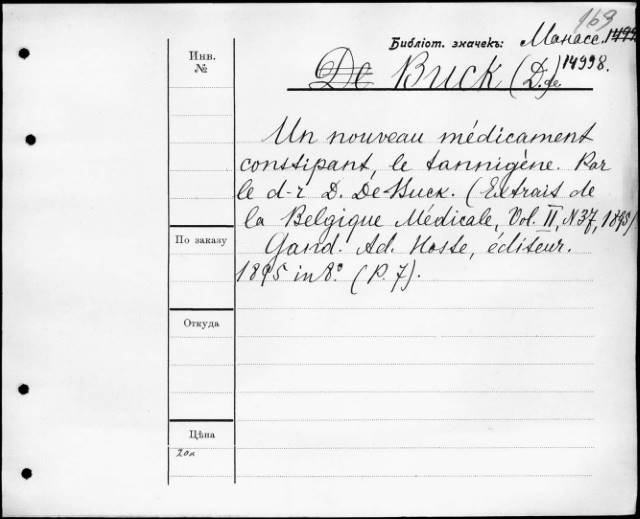 169
Библіот. значекъ: Манасс. 14998.
De Buck (D. de)
Инв.
№
Un nouveau médicament
constipant, le tannigène. Par
le d-r D. De Buck. (Extrait de
la Belgique Médicale, Vol. II, N 37, 1895)
По заказу
Gand. Ad. Hoste, éditeur.
1895 in 8.º (P. 7).
Откуда
Цѣна
20к